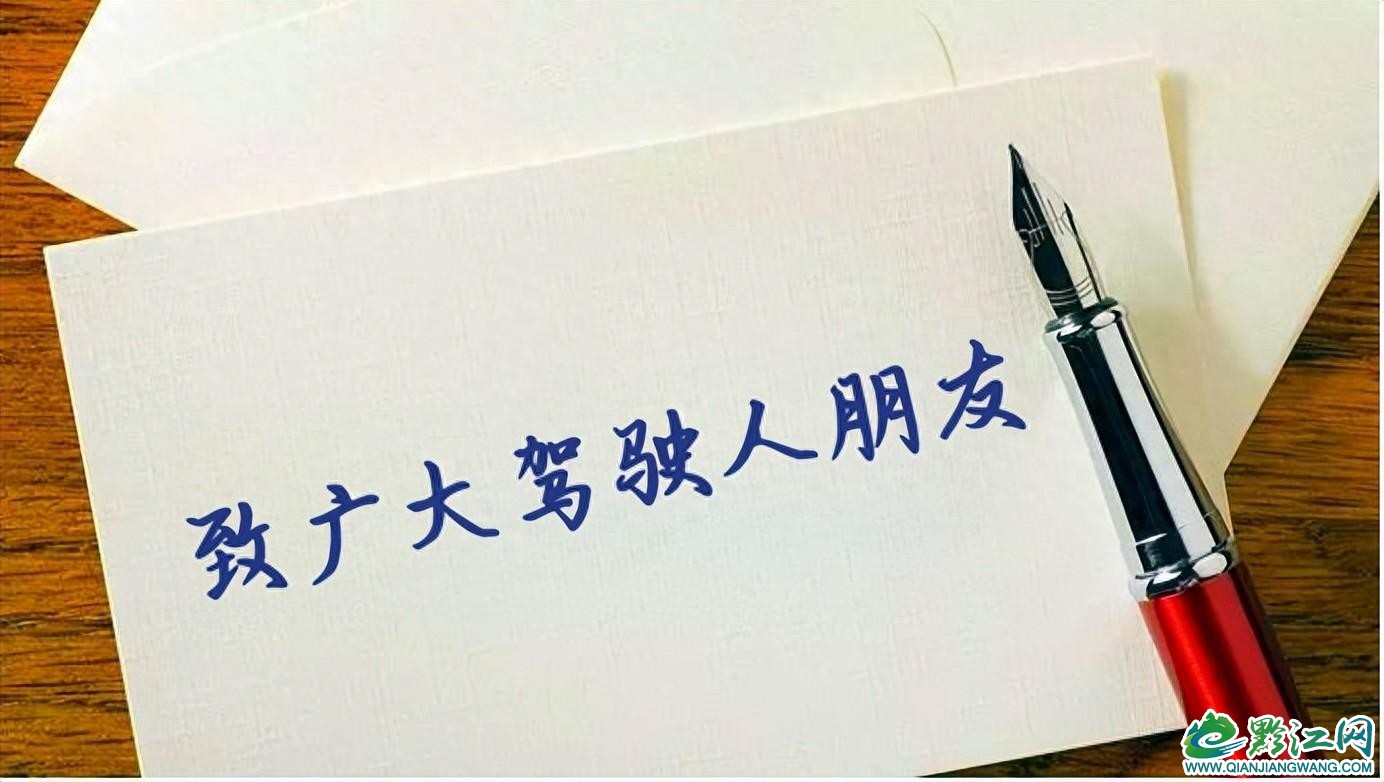 致广大驾驶人朋友
黔江网
WWW.QIANJIANGWANG.COM